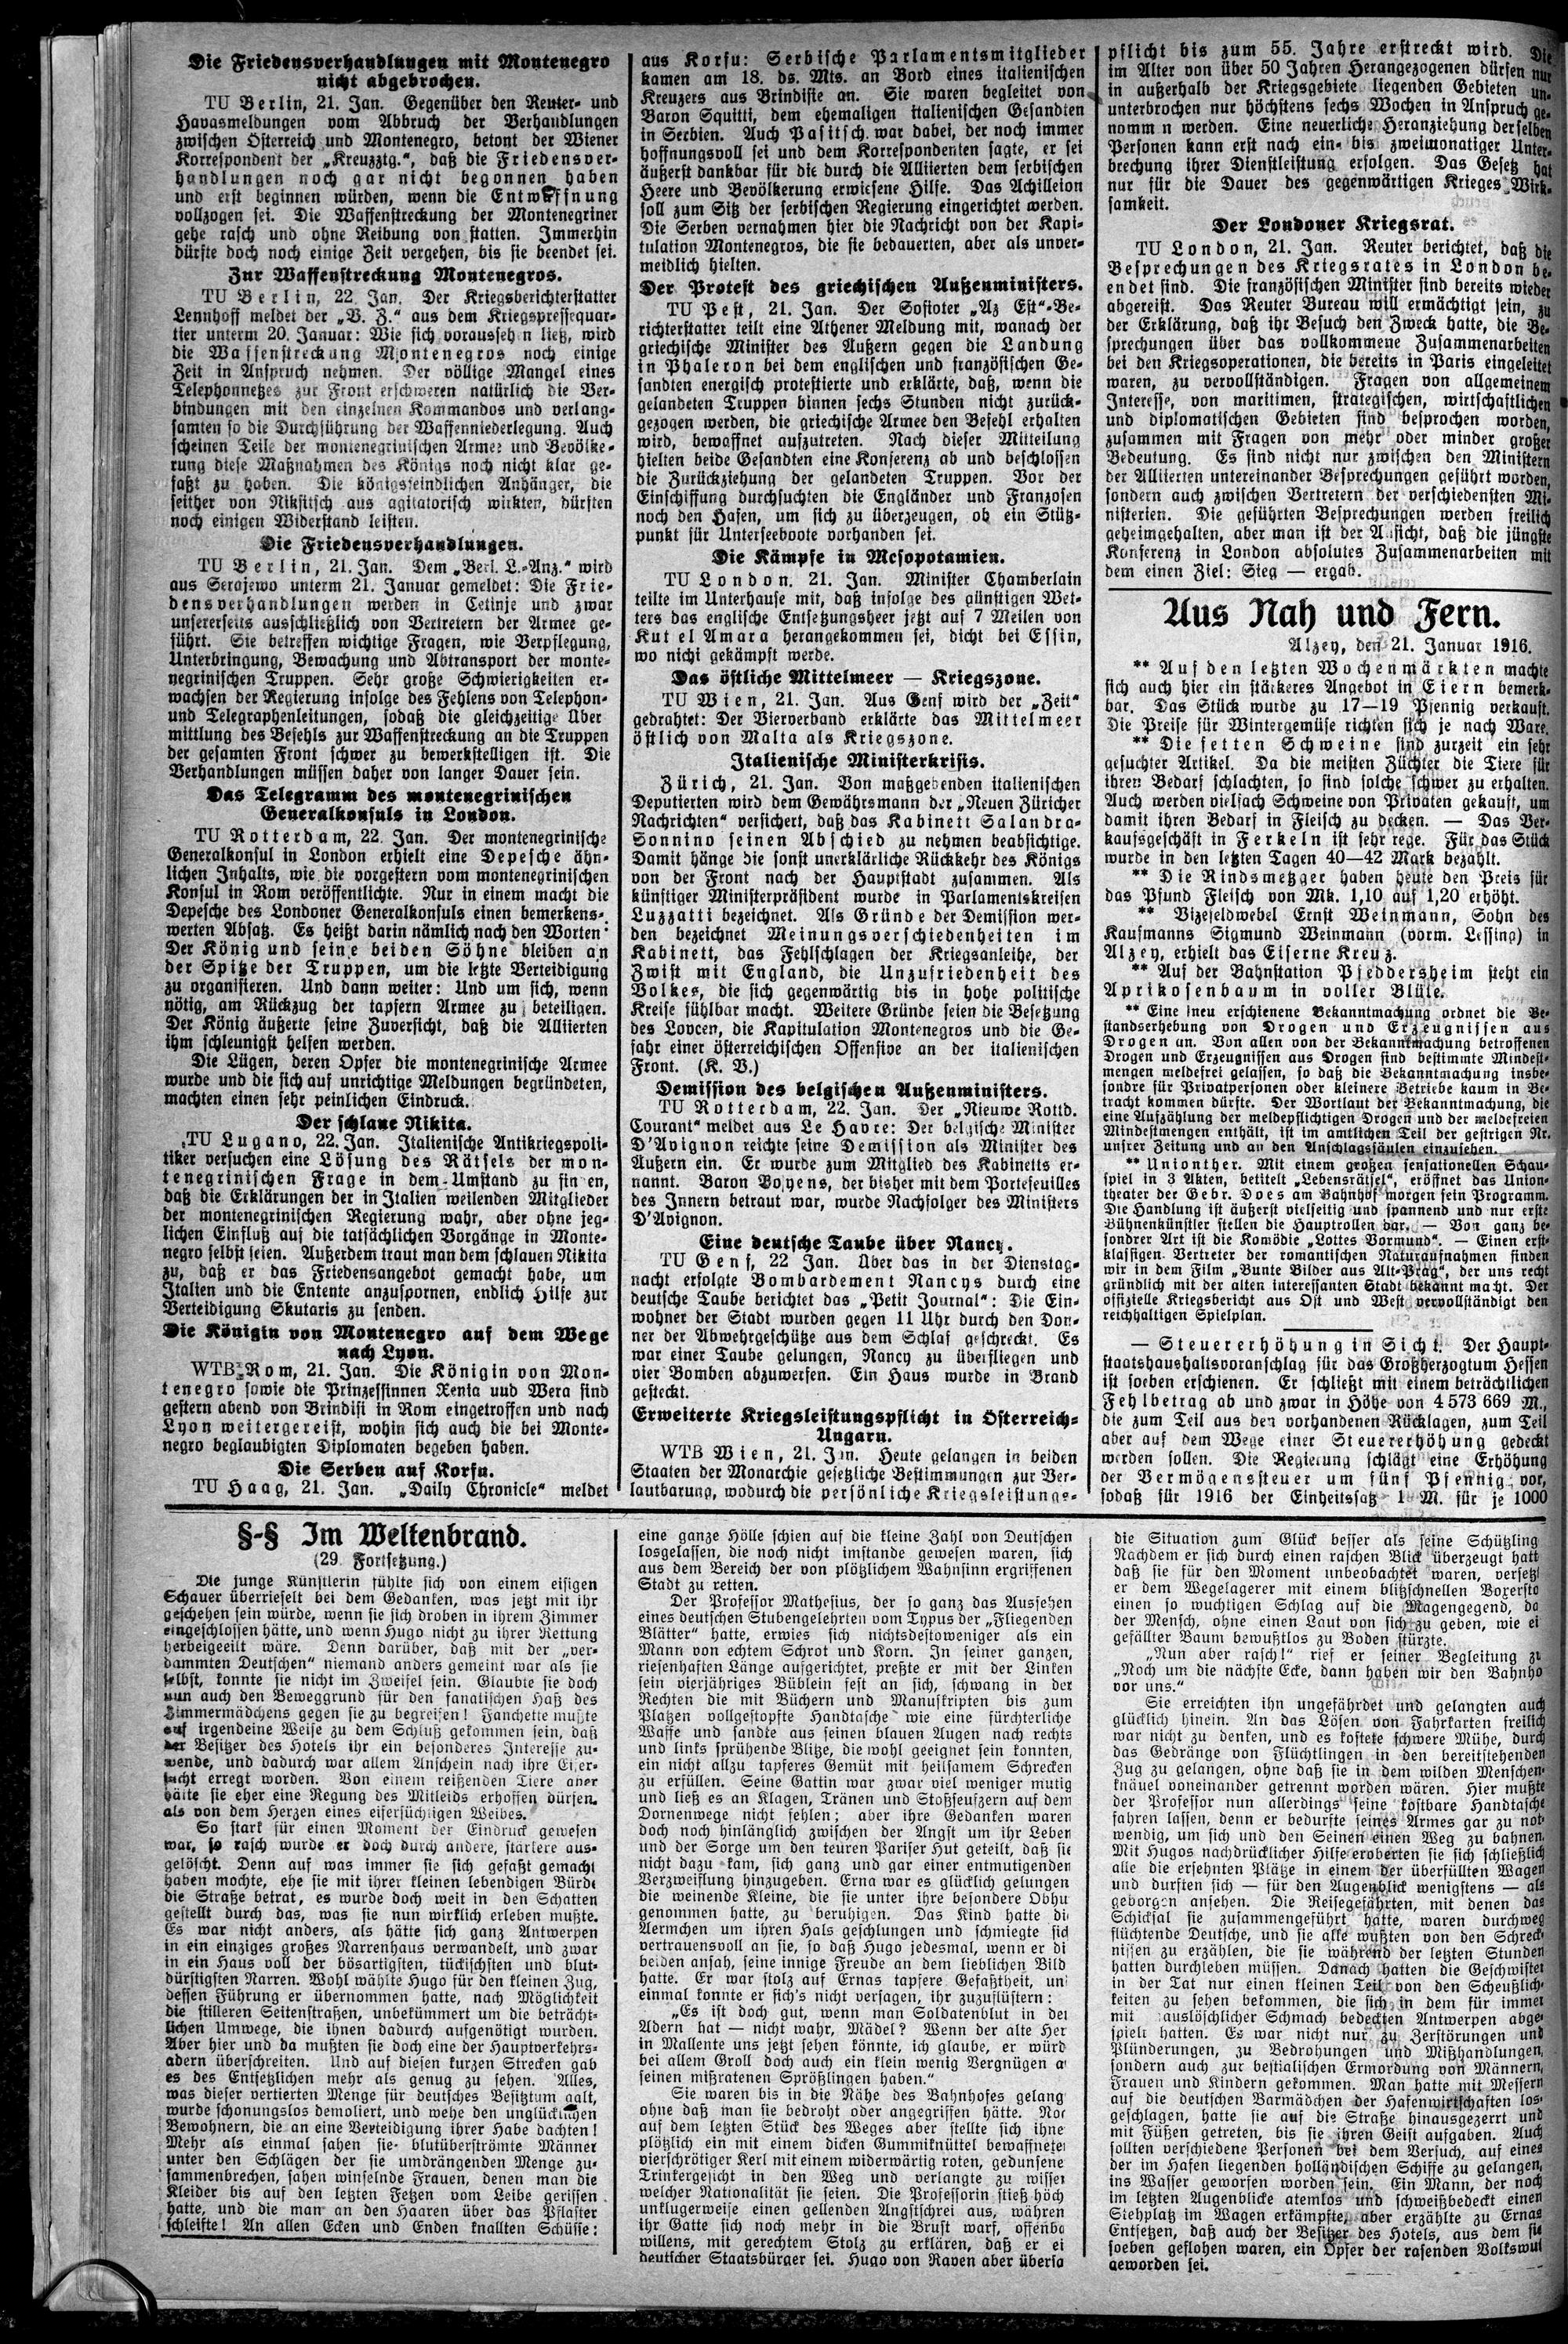 Die Friedensverhandlungen mit Montenegro
nicht abgebrochen.
TU Berlin, 21. Jan. Gegenüber den Reuter- und
Havasmeldungen vom Abbruch der Verhandlungen
zwischen Österreich und Montenegro, betont der Wiener
Korrespondent der „Kreuzztg.“, daß die Friedensver-
handlungen noch gar nicht begonnen haben
und erst beginnen würden, wenn die Entwaffnung
vollzogen sei. Die Waffenstreckung der Montenegriner
gehe rasch und ohne Reibung von statten. Immerhin
dürfte doch noch einige Zeit vergehen, bis sie beendet sei.
Zur Waffenstreckung Montenegros.
TU Berlin, 22 Jan. Der Kriegsberichterstatter
Lennhoff meldet der „V. Z.“ aus dem Kriegspressequar-
tier unterm 20. Januar: Wie sich voraussehen ließ, wird
die Waffenstreckung Montenegros noch einige
Zeit in Anspruch nehmen. Der völlige Mangel eines
Telephonnetzes zur Front erschweren natürlich die Ver-
bindungen mit den einzelnen Kommandos und verlang-
samten so die Durchführung der Waffenniederlegung. Auch
scheinen Teile der montenegrinischen Armee und Bevölke-
rung diese Maßnahmen des Königs noch nicht klar ge-
faßt zu haben. Die königsfeindlichen Anhänger, die
seither von Niksitsch aus agitatorisch wirkten, dürften
noch einigen Widerstand leisten.
Die Friedensverhandlungen.
TU Berlin, 21. Jan. Dem „Berl. L.-Anz.“ wird
aus Serajewo unterm 21. Januar gemeldet: Die Frie-
densverhandlungen werden in Cetinje und zwar
unsererseits ausschließlich von Vertretern der Armee ge-
führt. Sie betreffen wichtige Fragen, wie Verpflegung,
Unterbringung, Bewachung und Abtransport der monte-
negrinischen Truppen. Sehr große Schwierigkeiten er-
wachsen der Regierung infolge des Fehlens von Telephon-
und Telegraphenleitungen, sodaß die gleichzeitige Über
mittlung des Befehls zur Waffenstreckung an die Truppen
der gesamten Front schwer zu bewerkstelligen ist. Die
Verhandlungen müssen daher von langer Dauer sein.
Das Telegramm des montenegrinischen
Generalkonsuls in London.
TU Rotterdam, 22. Jan. Der montenegrinische
Generalkonsul in London erhielt eine Depesche ähn-
lichen Inhalts, wie die vorgestern vom montenegrinischen
Konsul in Rom veröffentlichte. Nur in einem macht die
Depesche des Londoner Generalkonsuls einen bemerkens-
werten Absatz. Es heißt darin nämlich nach den Worten:
Der König und seine beiden Söhne bleiben an
der Spitze der Truppen, um die letzte Verteidigung
zu organisieren. Und dann weiter: Und um sich, wenn
nötig, am Rückzug der tapfern Armee zu beteiligen.
Der König äußerte seine Zuversicht, daß die Alliierten
ihm schleunigst helfen werden.
Die Lügen, deren Opfer die montenegrinische Armee
wurde und die sich auf unrichtige Meldungen begründeten,
machten einen sehr peinlichen Eindruck.
Der schlaue Nikita.
TU Lugano, 22. Jan. Italienische Antikriegspoli-
tiker versuchen eine Lösung des Rätsels der mon-
tenegrinischen Frage in dem Umstand zu finden,
daß die Erklärungen der in Italien weilenden Mitglieder
der montenegrinischen Regierung wahr, aber ohne jeg-
lichen Einfluß auf die tatsächlichen Vorgänge in Monte-
negro selbst seien. Außerdem traut man dem schlauen Nikita
zu, daß er das Friedensangebot gemacht habe, um
Italien und die Entente anzuspornen, endlich Hilfe zur
Verteidigung Skutaris zu senden.
Die Königin von Montenegro auf dem Wege
nach Lyon.
WTB Rom, 21. Jan. Die Königin von Mon-
tenegro sowie die Prinzessinnen Xenia uud Wera sind
gestern abend von Brindisi in Rom eingetroffen und nach
Lyon weitergereist, wohin sich auch die bei Monte-
negro beglaubigten Diplomaten begeben haben.
Die Serben auf Korfu.
TU Haag, 21. Jan. „Daily Chronicle“ meldet
aus Korfu: Serbische Parlamentsmitglieder
kamen am 18. ds. Mts. an Bord eines italienischen
Kreuzers aus Brindisie an. Sie waren begleitet von
Baron Squitti, dem ehemaligen italienischen Gesandten
in Serbien. Auch Pasitsch war dabei, der noch immer
hoffnungsvoll sei und dem Korrespondenten sagte, er sei
äußerst dankbar für die durch die Alliierten dem serbischen
Heere und Bevölkerung erwiesene Hilfe. Das Achilleion
soll zum Sitz der serbischen Regierung eingerichtet werden.
Die Serben vernahmen hier die Nachricht von der Kapi-
tulation Montenegros, die sie bedauerten, aber als unver-
meidlich hielten.
Der Protest des griechischen Außenministers.
TU Pest, 21. Jan. Der Sofioter „Az Est“-Be-
richterstatter teilt eine Athener Meldung mit, wanach der
griechische Minister des Äußern gegen die Landung
in Phaleron bei dem englischen und französischen Ge-
sandten energisch protestierte und erklärte, daß, wenn die
gelandeten Truppen binnen sechs Stunden nicht zurück-
gezogen werden, die griechische Armee den Befehl erhalten
wird, bewaffnet aufzutreten. Nach dieser Mitteilung
hielten beide Gesandten eine Konferenz ab und beschlossen
die Zurückziehung der gelandeten Truppen. Vor der
Einschiffung durchsuchten die Engländer und Franzosen
noch den Hafen, um sich zu überzeugen, ob ein Stütz-
punkt für Unterseeboote vorhanden sei.
Die Kämpfe in Mesopotamien.
TU London, 21. Jan. Minister Chamberlain
teilte im Unterhause mit, daß infolge des günstigen Wet-
ters das englische Entsetzungsheer jetzt auf 7 Meilen von
Kut el Amara herangekommen sei, dicht bei Essin,
wo nicht gekämpft werde.
Das östliche Mittelmeer — Kriegszone.
TU Wien, 21. Jan. Aus Genf wird der „Zeit“
gedrahtet: Der Vierverband erklärte das Mittelmeer
östlich von Malta als Kriegszone.
Italienische Ministerkrisis.
Zürich, 21. Jan. Von maßgebenden italienischen
Deputierten wird dem Gewährsmann der „Neuen Züricher
Nachrichten“ versichert, daß das Kabinett Salandra-
Sonnino seinen Abschied zu nehmen beabsichtige.
Damit hänge die sonst unerklärliche Rückkehr des Königs
von der Front nach der Hauptstadt zusammen. Als
künftiger Ministerpräsident wurde in Parlamentskreisen
Luzzatti bezeichnet. Als Gründe der Demission wer-
den bezeichnet Meinungsverschiedenheiten im
Kabinett, das Fehlschlagen der Kriegsanleihe, der
Zwist mit England, die Unzufriedenheit des
Volkes, die sich gegenwärtig bis in hohe politische
Kreise fühlbar macht. Weitere Gründe seien die Besetzung
des Lovcen, die Kapitulation Montenegros und die Ge-
fahr einer österreichischen Offensive an der italienischen
Front. (K. V.)
Demission des belgischen Außenministers.
TU Rotterdam, 22. Jan. Der „Nieuwe Rottd.
Courant“ meldet aus Le Havre: Der belgische Minister
D'Avignon reichte seine Demission als Minister des
Äußern ein. Er wurde zum Mitglied des Kabinetts er-
nannt. Baron Boyens, der bisher mit dem Portefeuilles
des Innern betraut war, wurde Nachfolger des Ministers
D'Avignon.
Eine deutsche Taube über Nancy.
TU Genf, 22 Jan. Über das in der Dienstag-
nacht erfolgte Bombardement Nancys durch eine
deutsche Taube berichtet das „Petit Journal“: Die Ein-
wohner der Stadt wurden gegen 11 Uhr durch den Don-
ner der Abwehrgeschütze aus dem Schlaf geschreckt. Es
war einer Taube gelungen, Nancy zu überfliegen und
vier Bomben abzuwerfen. Ein Haus wurde in Brand
gesteckt.
Erweiterte Kriegsleistungspflicht in Österreich-
Ungarn.
WTB Wien, 21. Jan. Heute gelangen in beiden
Staaten der Monarchie gesetzliche Bestimmungen zur Ver-
lautbarung, wodurch die persönliche Kriegsleistungs-
pflicht bis zum 55. Jahre erstreckt wird. Die
im Alter von über 50 Jahren Herangezogenen dürfen nur
in außerhalb der Kriegsgebiete liegenden Gebieten un-
unterbrochen nur höchstens sechs Wochen in Anspruch ge-
nomm n werden. Eine neuerliche Heranziehung derselben
Personen kann erst nach ein- bis zweimonatiger Unter-
brechung ihrer Dienstleistung erfolgen. Das Gesetz hat
nur für die Dauer des gegenwärtigen Krieges Wirk-
samkeit.
Der Londoner Kriegsrat.
TU London, 21. Jan. Reuter berichtet, daß die
Besprechungen des Kriegsrates in London be-
endet sind. Die französischen Minister sind bereits wieder
abgereist. Das Reuter Bureau will ermächtigt sein, zu
der Erklärung, daß ihr Besuch den Zweck hatte, die Be-
sprechungen über das vollkommene Zusammenarbeiten
bei den Kriegsoperationen, die bereits in Paris eingeleitet
waren, zu vervollständigen. Fragen von allgemeinem
Interesse, von maritimen, strategischen, wirtschaftlichen
und diplomatischen Gebieten sind besprochen worden,
zusammen mit Fragen von mehr oder minder großer
Bedeutung. Es sind nicht nur zwischen den Ministern
der Alliierten untereinander Besprechungen geführt worden,
sondern auch zwischen Vertretern der verschiedensten Mi-
nisterien. Die geführten Besprechungen werden freilich
geheimgehalten, aber man ist der Ansicht, daß die jüngste
Konferenz in London absolutes Zusammenarbeiten mit
dem einen Ziel: Sieg — ergab.
Aus Nah und Fern.
Alzey, den 21. Januar 1916.
** Auf den letzten Wochenmärkten machte
sich auch hier ein stärkeres Angebot in Eiern bemerk-
bar. Das Stück wurde zu 17—19 Pfennig verkauft.
Die Preise für Wintergemüse richten sich je nach Ware.
** Die fetten Schweine sind zurzeit ein sehr
gesuchter Artikel. Da die meisten Züchter die Tiere für
ihren Bedarf schlachten, so sind solche schwer zu erhalten.
Auch werden vielfach Schweine von Privaten gekauft, um
damit ihren Bedarf in Fleisch zu decken. — Das Ver-
kaufsgeschäft in Ferkeln ist sehr rege. Für das Stück
wurde in den letzten Tagen 40—42 Mark bezahlt.
** Die Rindsmetzger haben heute den Preis für
das Pfund Fleisch von Mk. 1,10 auf 1,20 erhöht.
** Vizefeldwebel Ernst Weinmann, Sohn des
Kaufmanns Sigmund Weinmann (vorm. Lessing) in
Alzey, erhielt das Eiserne Kreuz.
** Auf der Bahnstation Pfeddersheim steht ein
Aprikosenbaum in voller Blüte.
** Eine neu erschienene Bekanntmachung ordnet die Be-
standserhebung von Drogen und Erzeugnissen aus
Drogen an. Von allen von der Bekanntmachung betroffenen
Drogen und Erzeugnissen aus Drogen sind bestimmte Mindest-
mengen meldefrei gelassen, so daß die Bekanntmachung insbe-
sondre für Privatpersonen oder kleinere Betriebe kaum in Be-
tracht kommen dürfte. Der Wortlaut der Bekanntmachung, die
eine Aufzählung der meldepflichtigen Drogen und der meldefreien
Mindestmengen enthält, ist im amtlichen Teil der gestrigen Nr.
unsrer Zeitung und an den Anschlagsäulen einzusehen.
** Unionther. Mit einem großen sensationellen Schau-
spiel in 3 Akten, betitelt „Lebensrätsel“, eröffnet das Union-
theater der Gebr. Does am Bahnhof morgen sein Programm.
Die Handlung ist äußerst vielseitig und spannend und nur erste
Bühnenkünstler stellen die Hauptrollen dar. — Von ganz be-
sondrer Art ist die Komödie „Lottes Vormund“. — Einen erst-
klassigen Vertreter der romantischen Naturaufnahmen finden
wir in dem Film „Bunte Bilder aus Alt-Prag“, der uns recht
gründlich mit der alten interessanten Stadt bekannt macht. Der
offizielle Kriegsbericht aus Ost und West vervollständigt den
reichhaltigen Spielplan.
— Steuererhöhung in Sicht. Der Haupt-
staatshaushaltsvoranschlag für das Großherzogtum Hessen
ist soeben erschienen. Er schließt mit einem beträchtlichen
Fehlbetrag ab und zwar in Höhe von 4 573 669 M.,
die zum Teil aus den vorhandenen Rücklagen, zum Teil
aber auf dem Wege einer Steuererhöhung gedeckt
werden sollen. Die Regierung schlägt eine Erhöhung
der Vermögenssteuer um fünf Pfennig vor,
sodaß für 1916 der Einheitssatz 1 M. für je 1000
§-§ Im Weltenbrand.
(29. Fortsetzung.)
Die junge Künstlerin fühlte sich von einem eisigen
Schauer überrieselt bei dem Gedanken, was jetzt mit ihr
geschehen sein würde, wenn sie sich droben in ihrem Zimmer
eingeschlossen hätte, und wenn Hugo nicht zu ihrer Rettung
herbeigeeilt wäre. Denn darüber, daß mit der „ver-
dammten Deutschen“ niemand anders gemeint war als sie
selbst, konnte sie nicht im Zweifel sein. Glaubte sie doch
nun auch den Beweggrund für den fanatischen Haß des
Zimmermädchens gegen sie zu begreifen! Fanchette mußte
auf irgendeine Weise zu dem Schluß gekommen sein, daß
der Besitzer des Hotels ihr ein besonderes Interesse zu-
wende, und dadurch war allem Anschein nach ihre Eifer-
sucht erregt worden. Von einem reißenden Tiere aber
hätte sie eher eine Regung des Mitleids erhoffen dürfen.
als von dem Herzen eines eifersüchtigen Weibes.
So stark für einen Moment der Eindruck gewesen
war, so rasch wurde er doch durch andere, stärkere aus-
gelöscht. Denn auf was immer sie sich gefaßt gemacht
haben mochte, ehe sie mit ihrer kleinen lebendigen Bürde
die Straße betrat, es wurde doch weit in den Schatten
gestellt durch das, was sie nun wirklich erleben mußte.
Es war nicht anders, als hätte sich ganz Antwerpen
in ein einziges großes Narrenhaus verwandelt, und zwar
in ein Haus voll der bösartigsten, tückischsten und blut-
dürstigsten Narren. Wohl wählte Hugo für den kleinen Zug,
dessen Führung er übernommen hatte, nach Möglichkeit
die stilleren Seitenstraßen, unbekümmert um die beträcht-
lichen Umwege, die ihnen dadurch aufgenötigt wurden.
Aber hier und da mußten sie doch eine der Hauptverkehrs-
adern überschreiten. Und auf diesen kurzen Strecken gab
es des Entsetzlichen mehr als genug zu sehen. Alles,
was dieser vertierten Menge für deutsches Besitztum galt,
wurde schonungslos demoliert, und wehe den unglücklichen
Bewohnern, die an eine Verteidigung ihrer Habe dachten!
Mehr als einmal sahen sie blutüberströmte Männer
unter den Schlägen der sie umdrängenden Menge zu-
sammenbrechen, sahen winselnde Frauen, denen man die
Kleider bis auf den letzten Fetzen vom Leibe gerissen
hatte, und die man an den Haaren über das Pflaster
schleifte! An allen Ecken und Enden knallten Schüsse:
eine ganze Hölle schien auf die kleine Zahl von Deutschen
losgelassen, die noch nicht imstande gewesen waren, sich
aus dem Bereich der von plötzlichem Wahnsinn ergriffenen
Stadt zu retten.
Der Professor Mathesius, der so ganz das Aussehen
eines deutschen Stubengelehrten vom Typus der „Fliegenden
Blätter“ hatte, erwies sich nichtsdestoweniger als ein
Mann von echtem Schrot und Korn. In seiner ganzen,
riesenhaften Länge aufgerichtet, preßte er mit der Linken
sein vierjähriges Büblein fest an sich, schwang in der
Rechten die mit Büchern und Manuskripten bis zum
Platzen vollgestopfte Handtasche wie eine fürchterliche
Waffe und sandte aus seinen blauen Augen nach rechts
und links sprühende Blitze, die wohl geeignet sein konnten,
ein nicht allzu tapferes Gemüt mit heilsamem Schrecken
zu erfüllen. Seine Gattin war zwar viel weniger mutig
und ließ es an Klagen, Tränen und Stoßseufzern auf dem
Dornenwege nicht fehlen; aber ihre Gedanken waren
doch noch hinlänglich zwischen der Angst um ihr Leben
und der Sorge um den teuren Pariser Hut geteilt, daß sie
nicht dazu kam, sich ganz und gar einer entmutigenden
Verzweiflung hinzugeben. Erna war es glücklich gelungen
die weinende Kleine, die sie unter ihre besondere Obhu
genommen hatte, zu beruhigen. Das Kind hatte di
Aermchen um ihren Hals geschlungen und schmiegte sich
vertrauensvoll an sie, so daß Hugo jedesmal, wenn er di
beiden ansah, seine innige Freude an dem lieblichen Bild
hatte. Er war stolz auf Ernas tapfere Gefaßtheit, un
einmal konnte er sich's nicht versagen, ihr zuzuflüstern:
„Es ist doch gut, wenn man Soldatenblut in den
Adern hat — nicht wahr, Mädel? Wenn der alte Her
in Mallente uns jetzt sehen könnte, ich glaube, er würd
bei allem Groll doch auch ein klein wenig Vergnügen a
seinen mißratenen Sprößlingen haben.“
Sie waren bis in die Nähe des Bahnhofes gelang
ohne daß man sie bedroht oder angegriffen hätte. Nor
auf dem letzten Stück des Weges aber stellte sich ihne
plötzlich ein mit einem dicken Gummiknüttel bewaffneter
vierschrötiger Kerl mit einem widerwärtig roten, gedunsene
Trinkergesicht in den Weg und verlangte zu wissen
welcher Nationalität sie seien. Die Professorin stieß höch
unklugerweise einen gellenden Angstschrei aus, währen
ihr Gatte sich noch mehr in die Brust warf, offenba
willens, mit gerechtem Stolz zu erklären, daß er ei
deutscher Staatsbürger sei. Hugo von Raven aber übersa
die Situation zum Glück besser als seine Schützling
Nachdem er sich durch einen raschen Blick überzeugt hatt
daß sie für den Moment unbeobachtet waren, versetz
er dem Wegelagerer mit einem blitzschnellen Boxersto
einen so wuchtigen Schlag auf die Magengegend, da
der Mensch, ohne einen Laut von sich zu geben, wie ei
gefällter Baum bewußtlos zu Boden stürzte.
„Nun aber rasch!“ rief er seiner Begleitung zu
„Noch um die nächste Ecke, dann haben wir den Bahnho
vor uns.“
Sie erreichten ihn ungefährdet und gelangten auch
glücklich hinein. An das Lösen von Fahrkarten freilich
war nicht zu denken, und es kostete schwere Mühe, durch
das Gedränge von Flüchtlingen in den bereitstehenden
Zug zu gelangen, ohne daß sie in dem wilden Menschen-
knäuel voneinander getrennt worden wären. Hier mußte
der Professor nun allerdings seine kostbare Handtasche
fahren lassen, denn er bedurfte seines Armes gar zu not-
wendig, um sich und den Seinen einen Weg zu bahnen.
Mit Hugos nachdrücklicher Hilfe eroberten sie sich schließlich
alle die ersehnten Plätze in einem der überfüllten Wagen
und durften sich — für den Augenblick wenigstens — als
geborgen ansehen. Die Reisegefährten, mit denen das
Schicksal sie zusammengeführt hatte, waren durchweg
flüchtende Deutsche, und sie alle wußten von den Schreck-
nissen zu erzählen, die sie während der letzten Stunden
hatten durchleben müssen. Danach hatten die Geschwister
in der Tat nur einen kleinen Teil von den Scheußlich-
keiten zu sehen bekommen, die sich in dem für immer
mit auslöschlicher Schmach bedeckten Antwerpen abge-
spielt hatten. Es war nicht nur zu Zerstörungen und
Plünderungen, zu Bedrohungen und Mißhandlungen,
sondern auch zur bestialischen Ermordung von Männern,
Frauen und Kindern gekommen. Man hatte mit Messern
auf die deutschen Barmädchen der Hafenwirtschaften los-
geschlagen, hatte sie auf die Straße hinausgezerrt und
mit Füßen getreten, bis sie ihren Geist aufgaben. Auch
sollten verschiedene Personen bei dem Versuch, auf eines
der im Hafen liegenden holländischen Schiffe zu gelangen,
ins Wasser geworfen worden sein. Ein Mann, der noch
im letzten Augenblicke atemlos und schweißbedeckt einen
Stehplatz im Wagen erkämpfte, aber erzählte zu Ernas
Entsetzen, daß auch der Besitzer des Hotels, aus dem sie
soeben geflohen waren, ein Opfer der rasenden Volkswut
geworden sei.